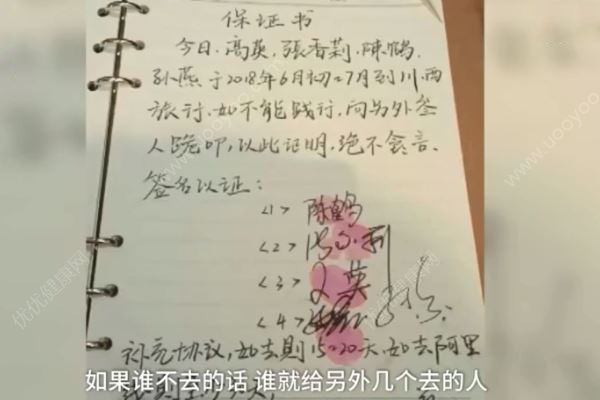 保证书
今日、高英，張香莉，陳鶴，
孙燕于2018年6月初-7月到川西
旅行，如不能践行，向另外叁
人跪叩，以此证明，绝不食言。
签名以证：
<1> 陈鹤
<2>
<3> 英
<4>
补充协议，如去则15-20天，如去阿里
如果谁不去的话 谁就给另外几个去的人
优优健康网
www.uooyoo